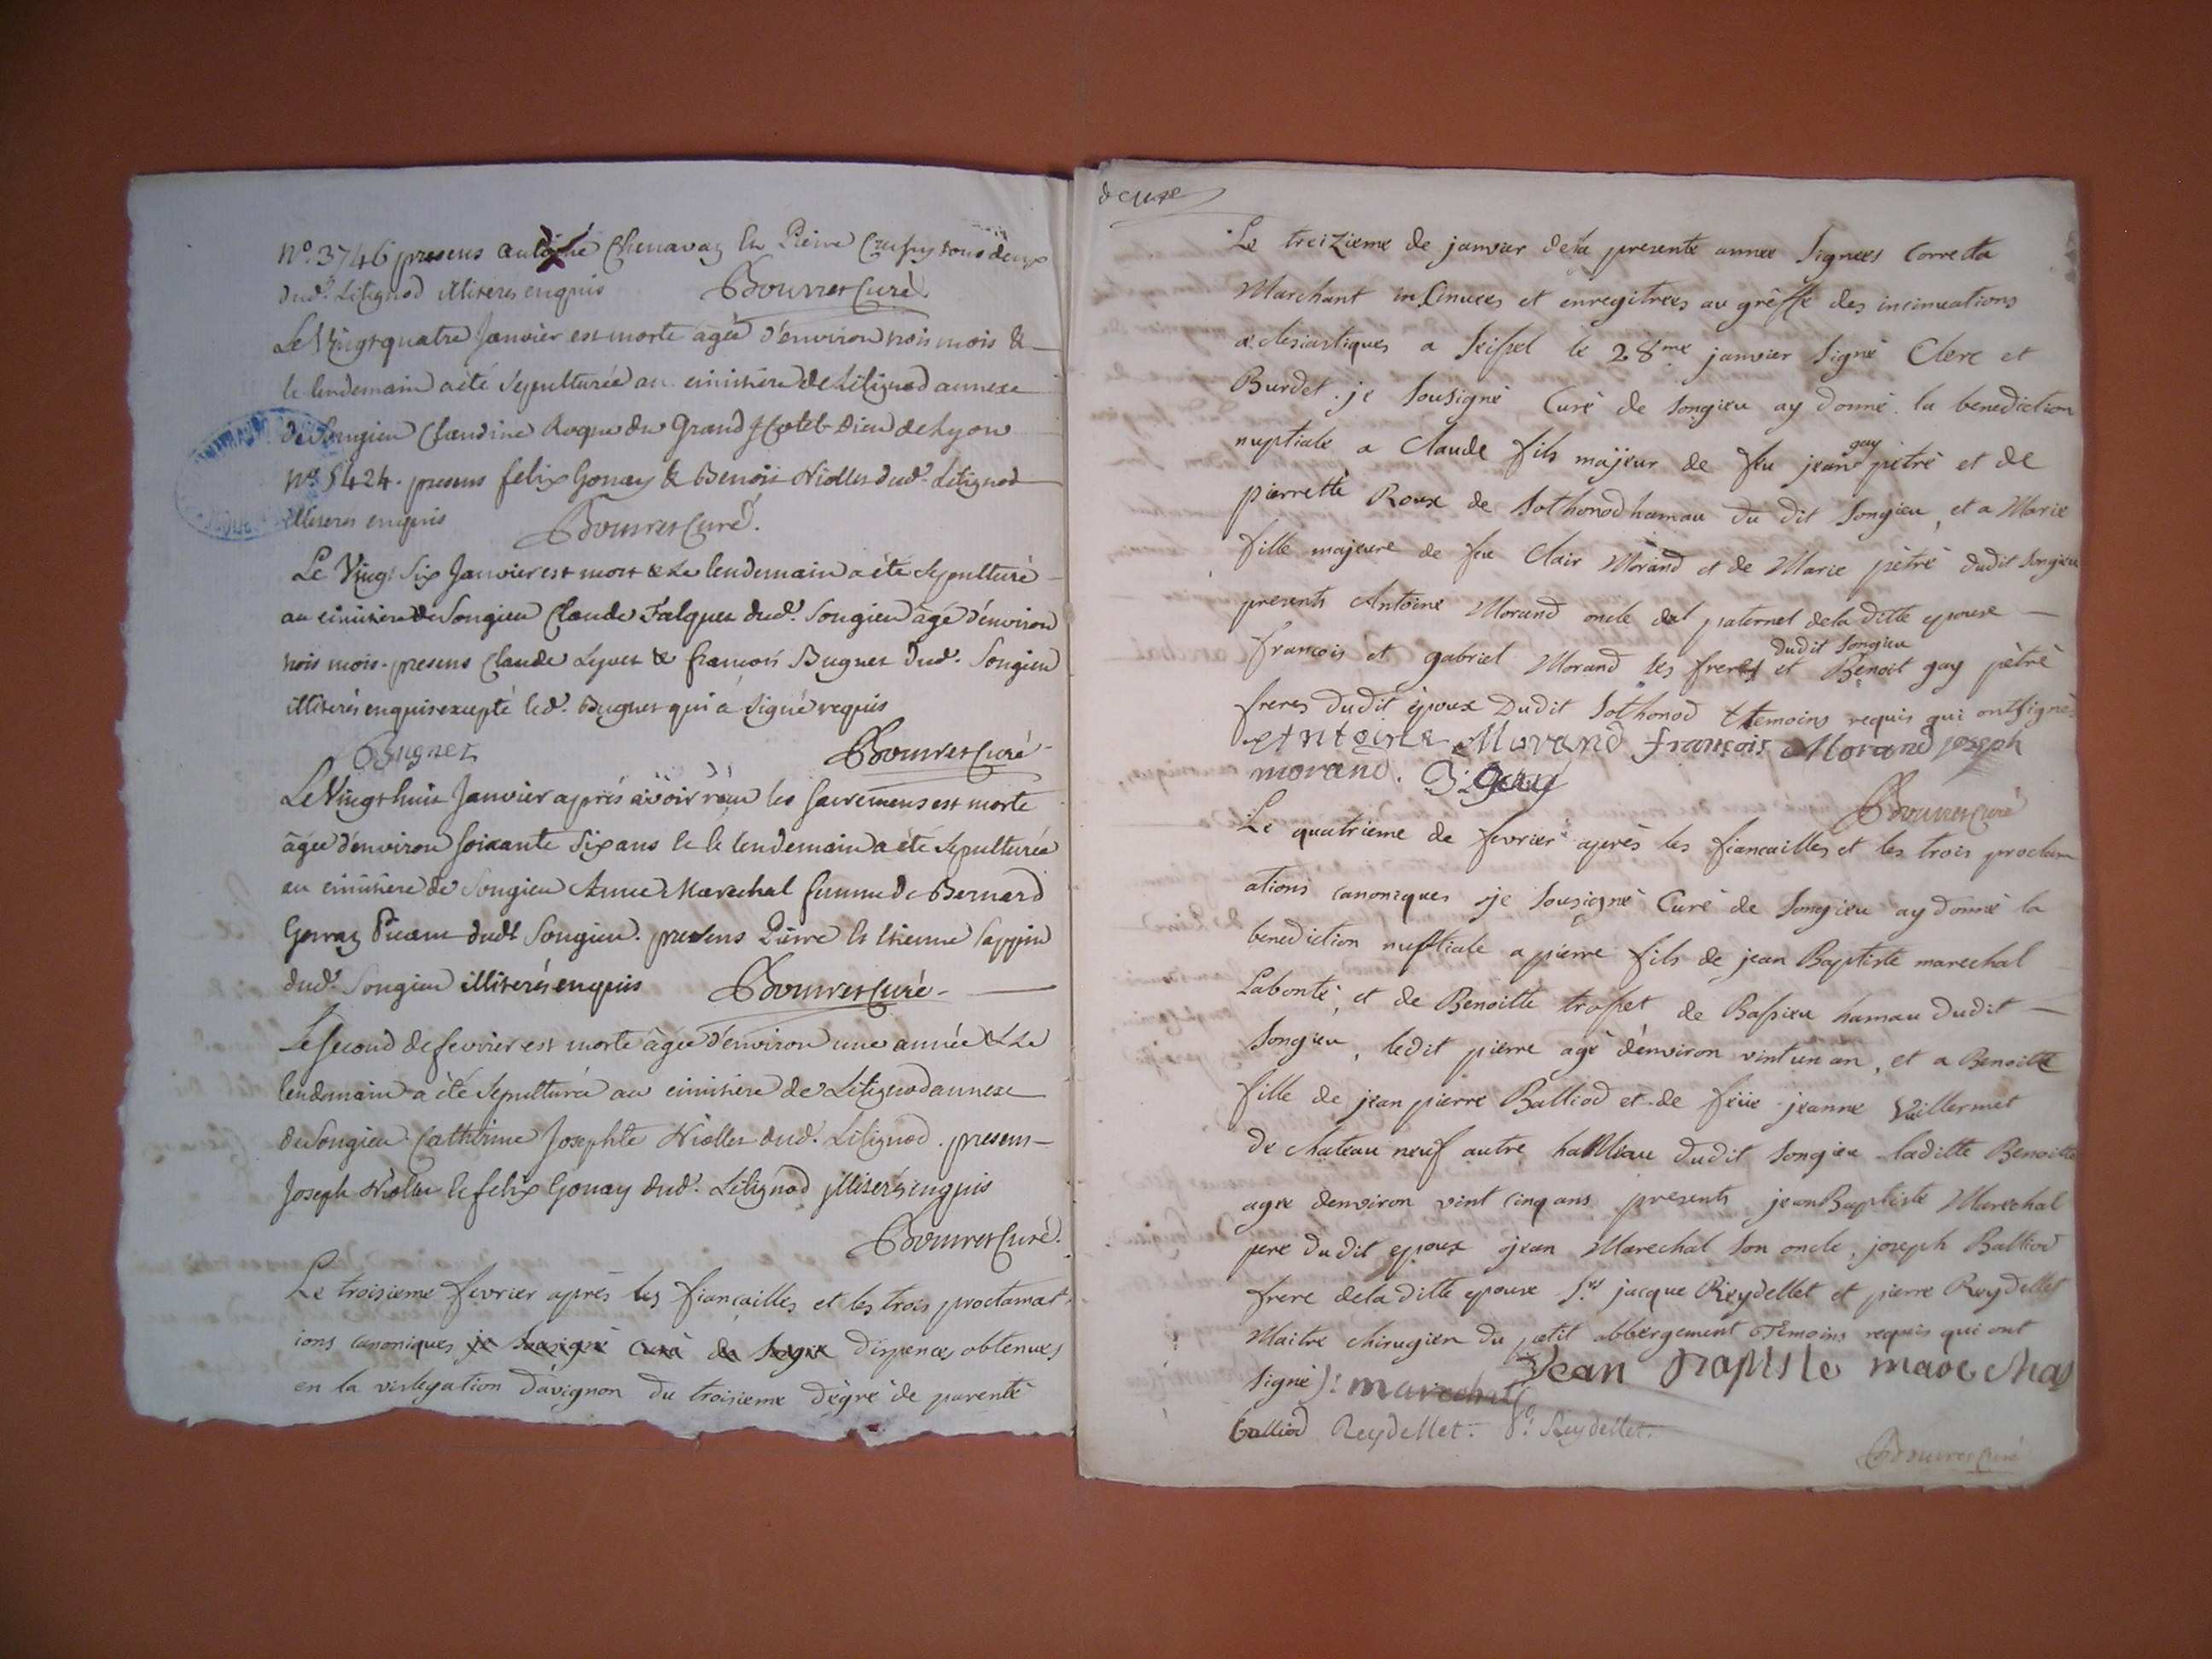 N.º 3746 presens antoine Chenavaz & Pierre Crussy tous deux
dud.t Litignod illiterés enquis Bouvret Curé.
Le Vingt quatre Janvier est morte agée d'environ trois mois &
le lendemain a été sepulturée au cimitiere de Litignod annexe
de Songieu Claudine Roque du Grand Hotel-Dieu de Lyon
N.º 5424. presens felix Gonay & Benoit Niollet dud.t Litignod
illiterés enquis Bouvret Curé.
Le Vingt Six Janvier est mort & le lendemain a été sepulturé
au cimitiere de Songieu Claude Falquet dud.t Songieu âgé d'environ
trois mois. presens Claude Lyvet & françois Bugnet dud.t Songieu
illiterés enquis excepté led.t Bugnet qui a signé requis
Bugnet Bouvret Curé
Le Vingt huit Janvier aprés avoir reçu les sacremens est morte
âgée d'environ soixante six ans & le lendemain a été sepulturée
au cimitiere de Songieu Anne Marechal femme de Bernard
dudt Songieu. presens Pierre & Etienne Sappin
dud.t Songieu illiterés enquis Bouvret Curé
Le second de fevrier est morte âgée d'environ une année & le
lendemain a été sepulturée au cimitiere de Litignod annexe
de Songieu Catherine Josephte Niollet dud.t Litignod. presens
Joseph Niollet & felix Gonay dud.t Litignod illiterés enquis
Bouvret Curé.
Le troisieme fevrier aprés les fiançailles et les trois proclamat
ions canoniques je sousigné curé de songieu dispences obtenues
en la vislegation d'avignon du troisieme dègrè de parenté
de cure
Le treizieme de janvier de la presente annee signees Corretta
Marchant insinuees et enregitrees au grêffe des incinuations
eclesiastiques a Seissel le 28me janvier signé Clerc et
Burdet. je sousigné Curé de songieu ay donné la benediction
nuptiale a Claude fils majeur de feu jean gay pètrè et de
pierrette Roux de Sothonod hamau du dit Songieu, et a Marie
fille majeure de feu Clair Morand et de Marie pètrè dudit songieu
presents Antoine Morand oncle paternel dela ditte epouse
francois et gabriel Morand ses freres dudit Songieu et Benoit gay pètrè
freres dudit èpoux dudit Sothonod temoins requis qui ont signé
Antoine Morand françois Morand joseph
morand. B: gay
Bouvret Curé
Le quatrieme de fevrier aprés les fiancailles et les trois proclam
ations canoniques je sousigné Curé de Songieu ay donné la
benediction nuptiale a pierre fils de jean Baptiste marechal
Labonté, et de Benoitte trosset de Bassieu hamau dudit
Songieu, ledit pierre agé d'environ vint un an, et a Benoitte
fille de jean pierre Balliod et de feüe jeanne Vuillermet
de chateau neuf autre hammau dudit songieu laditte Benoitte
agee denviron vint cinq ans presents jean Baptiste Marechal
pere du dit epoux jean Marechal son oncle, joseph Balliod
frere dela ditte epouse Srs jacque Reydellet et pierre Reydellet
Maitre chirugien du petit abbergement temoins requis qui ont
signé j: marechal Jean Baptiste marechal
balliod Reydellet. P. Reydellet.
Bouvret Curé